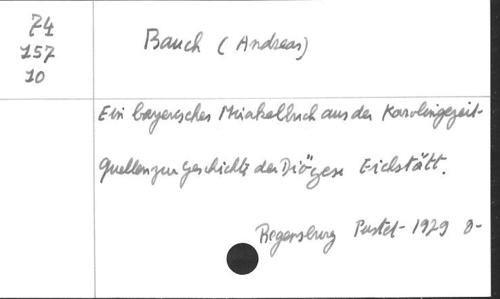 74
157
10
Bauch (Andreas)
Ein bayerisches Mirakelbuch aus der Karolingezeit-
Quellen zur Geschichte der Diözese Eichstätt.
Regensburg Pustet - 1979 8-